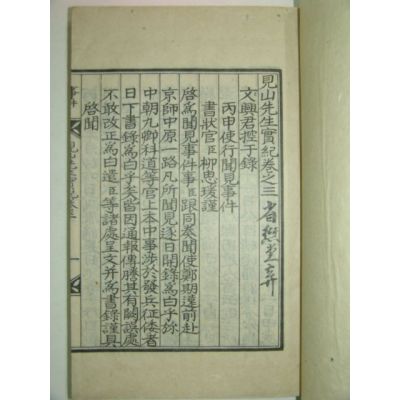 見山先生實紀卷之三
文興君控于錄
丙申使行聞見事件
書狀官臣柳思瑗謹
啓爲聞見事件事臣跟同奏聞使鄭期遠前赴
京師中原一路凡所聞見逐日開錄爲白乎㫆
中朝九卿科道等官上本中事涉於發兵征倭者
日下書錄爲白乎矣皆因通報傳謄其有闕誤處
不敢改正爲白遣臣等諸處呈文幷爲書錄謹具
啓聞